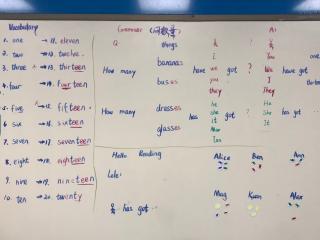 Vocabulary
1. one → 11. eleven
2. two → 12. twelve
3. three → 13. thirteen
4. four 14. fourteen
5. five → 15. fifteen
6. six → 16. sixteen
7. seven → 17. seventeen
8. eight → 18. eighteen
9. nine → 19. nineteen
10. ten → 20. twenty
Grammar
Q
things
A:
How many bananas have we got ?
buses
I
you
they
I
You
We have got
They
one
How many dresses has he got ?
glasses
she
it
He
She has got
It
Hello Reading
Lele:
has got
Alice Ben Ann
May Ken Alex